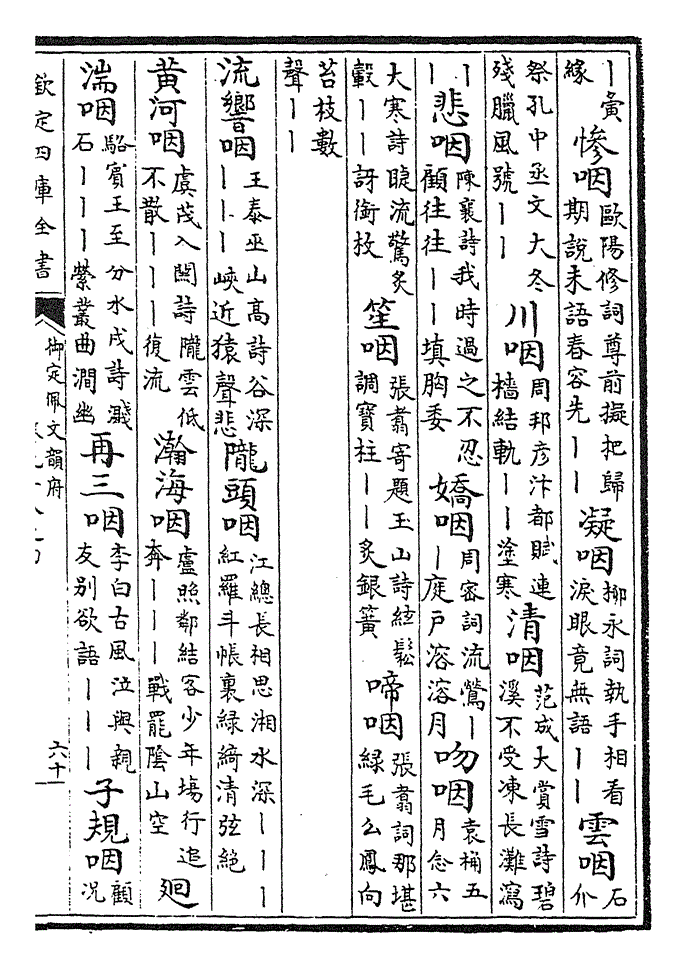 ｜黃慘咽歐陽修詞尊前擬把歸
緣期說未語春容先｜｜凝咽柳永詞執手相看淚眼竟無語｜｜雲咽石介
祭孔中丞文大冬殘臘風號｜｜川咽周邦彥汴都賦連檣結軌｜｜塗寒清咽范成大賞雪詩碧溪不受凍長灘瀉
｜｜悲咽陳襄詩我時過之不忍顧往往｜｜填胸委嬌咽周密詞流鶯｜｜庭戶溶溶月吻咽袁桷五月念六
大寒詩睫流驚炙轂｜｜訝銜枚笙咽張翥寄題玉山詩絃鬆調寶柱｜｜炙銀簧啼咽張翥詞那堪綠毛么鳳向
苔枝數聲｜｜
流響咽王泰巫山高詩谷深｜｜｜峽近猿聲悲隴頭咽江總長相思湘水深｜｜｜紅羅斗帳裏綠綺清弦絕
黃河咽虞茂入關詩隴雲低不散｜｜｜復流瀚海咽盧照鄰結客少年場行追奔｜｜｜戰罷陰山空迴
湍咽石駱賓王至分水戍詩濺石｜｜｜縈叢曲澗幽再三咽李白古風泣與親友別欲語｜｜｜子規咽顧況
欽定四庫全書
御定佩文韻府
六十一